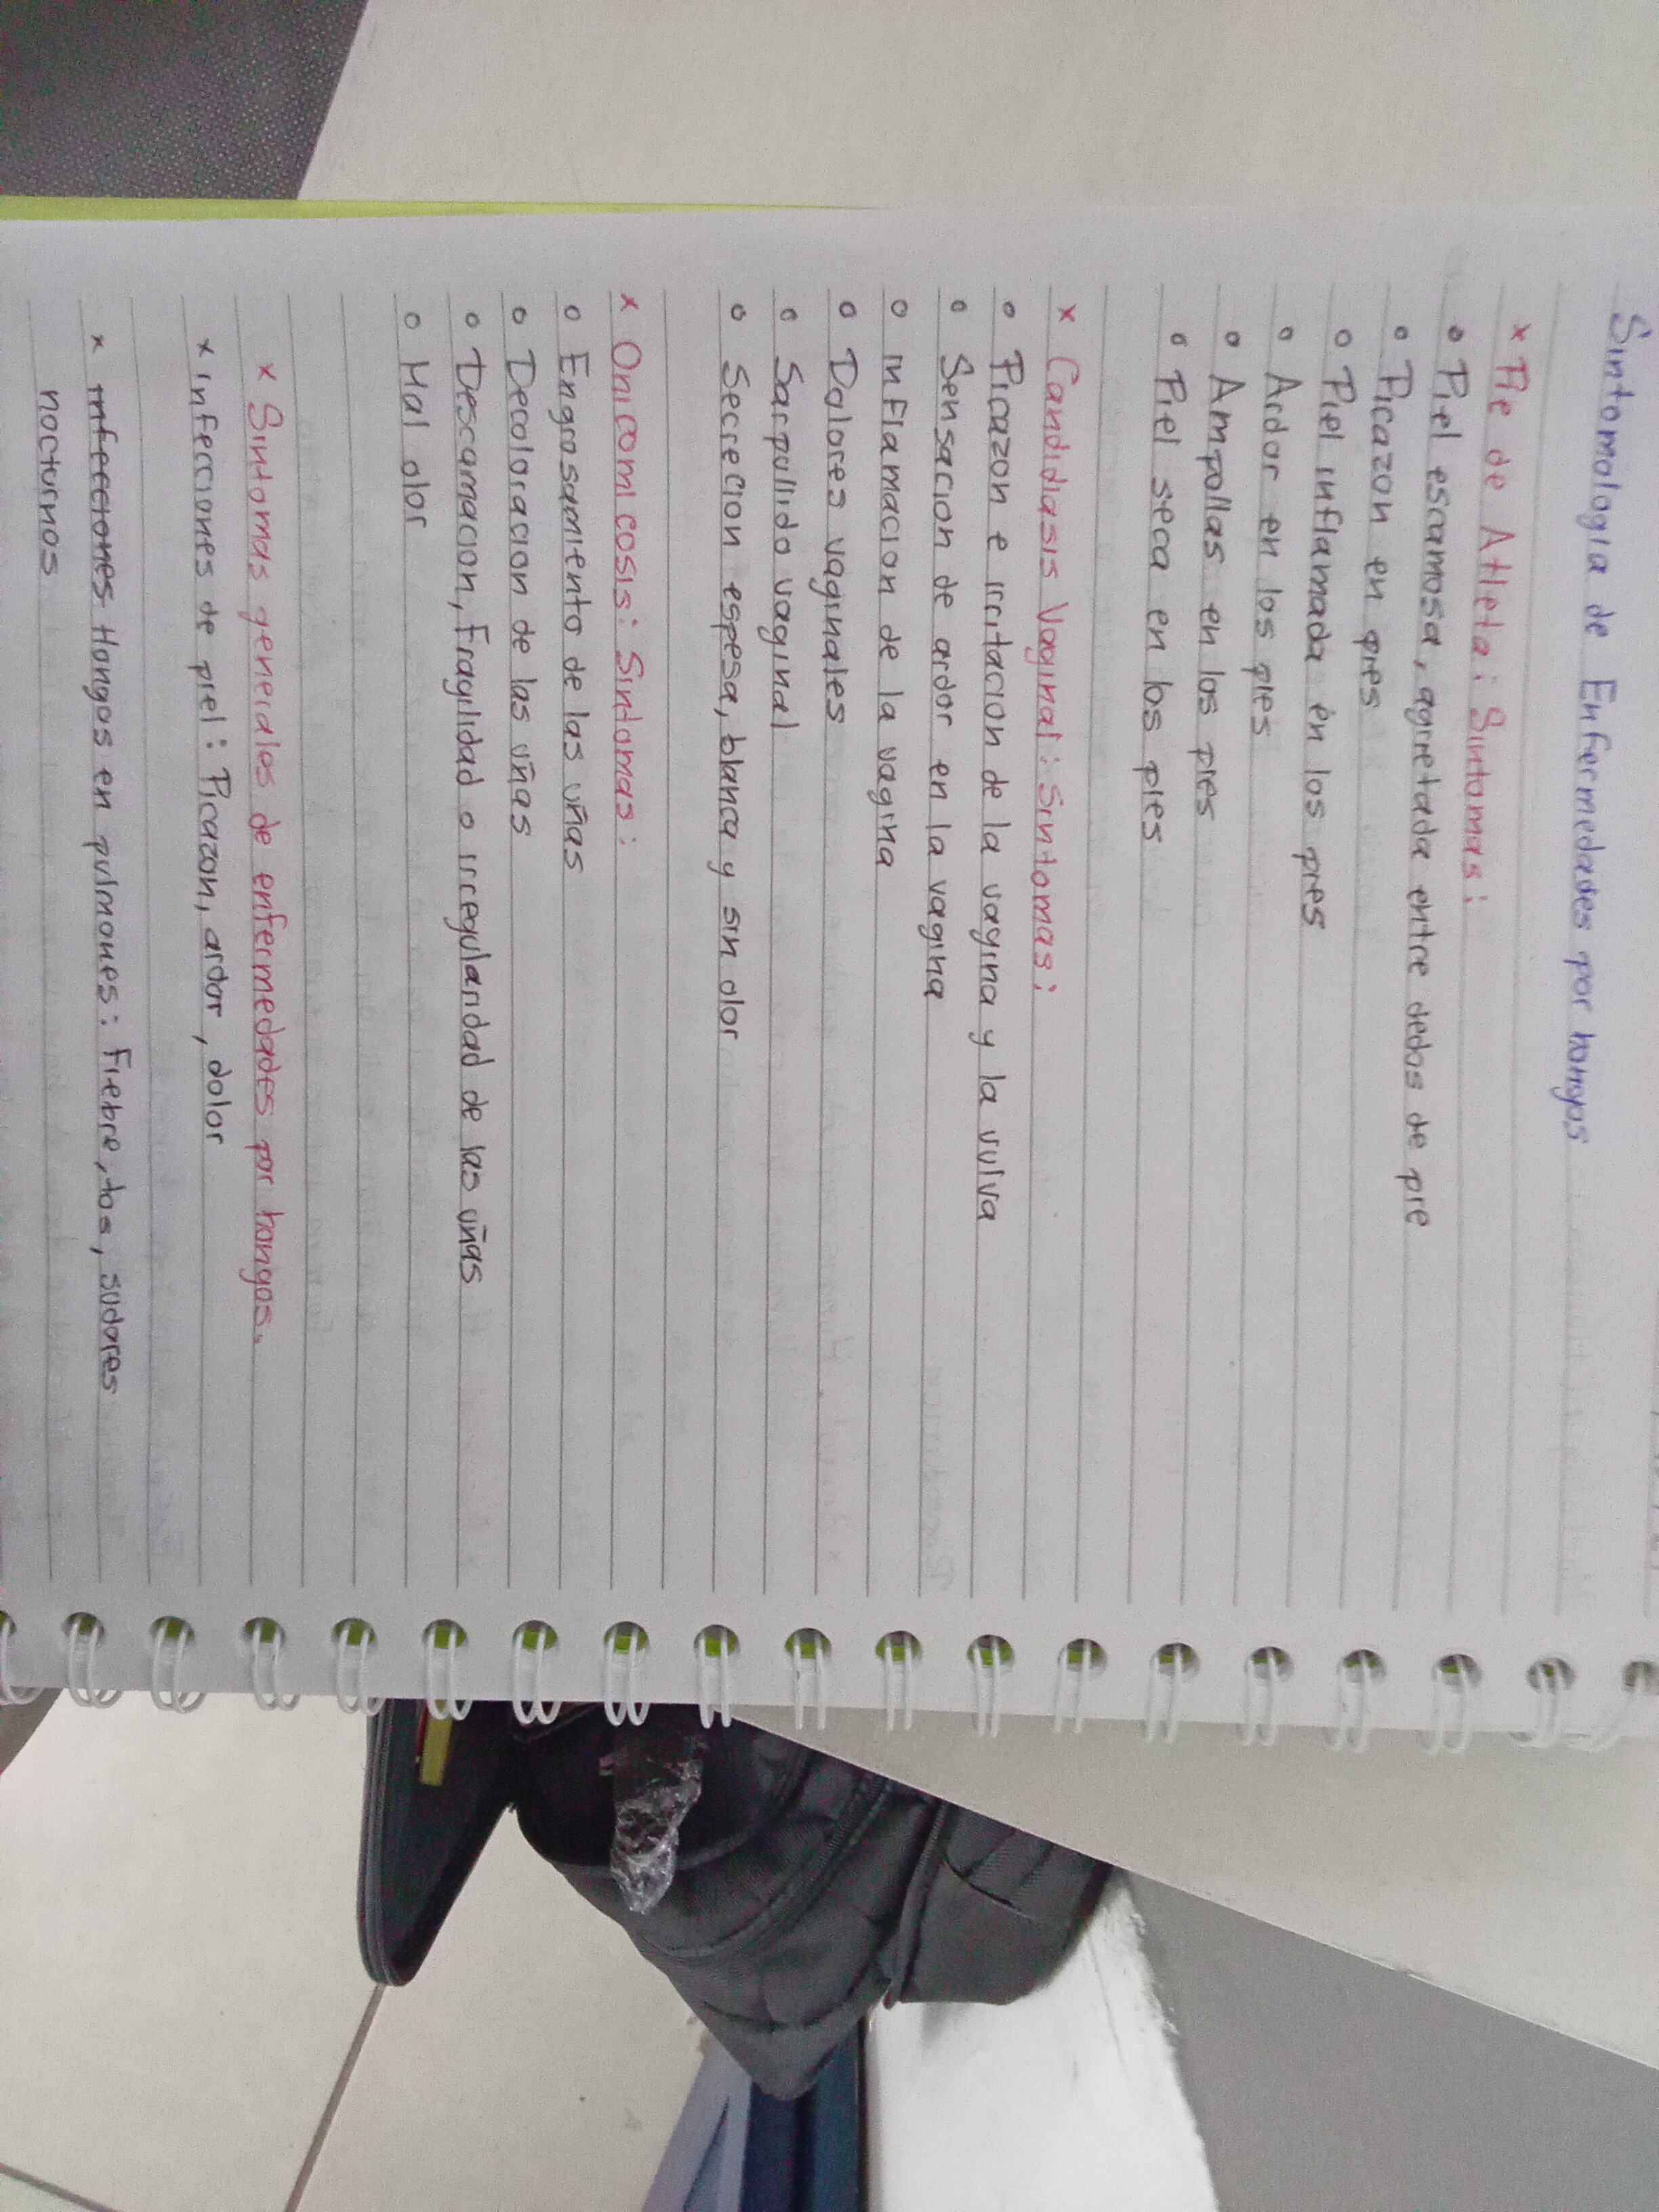 Sintomologia de Enfermedades por hongos
x Pie de Atleta: Sintomas:
• Piel escamosa, agrietada entre dedos de pie
• Picazon en pies
o Piel inflamada en los pies
• Ardor en los pies
• Ampollas en los pies
• Piel seca en los pies
x Candidiasis Vaginal: Sintomas:
• Picazon e irritacion de la vagina y la vulva
• Sensacion de ardor en la vagina
o inflamacion de la vagina
o Dolores vaginales
• Sarpullido vaginal
• Secrecion espesa, blanca y sin olor
x Onicomicosis: Sintomas:
o Engrosamiento de las uñas
o Decoloracion de las uñas
• Descamacion, Fragilidad o irregularidad de las uñas
o Mal olor
x Sintomas generales de enfermedades por hongos.
x infecciones de piel: Picazon, ardor, dolor
x infecciones Hongos en pulmones: Fiebre, tos, sudores
nocturnos